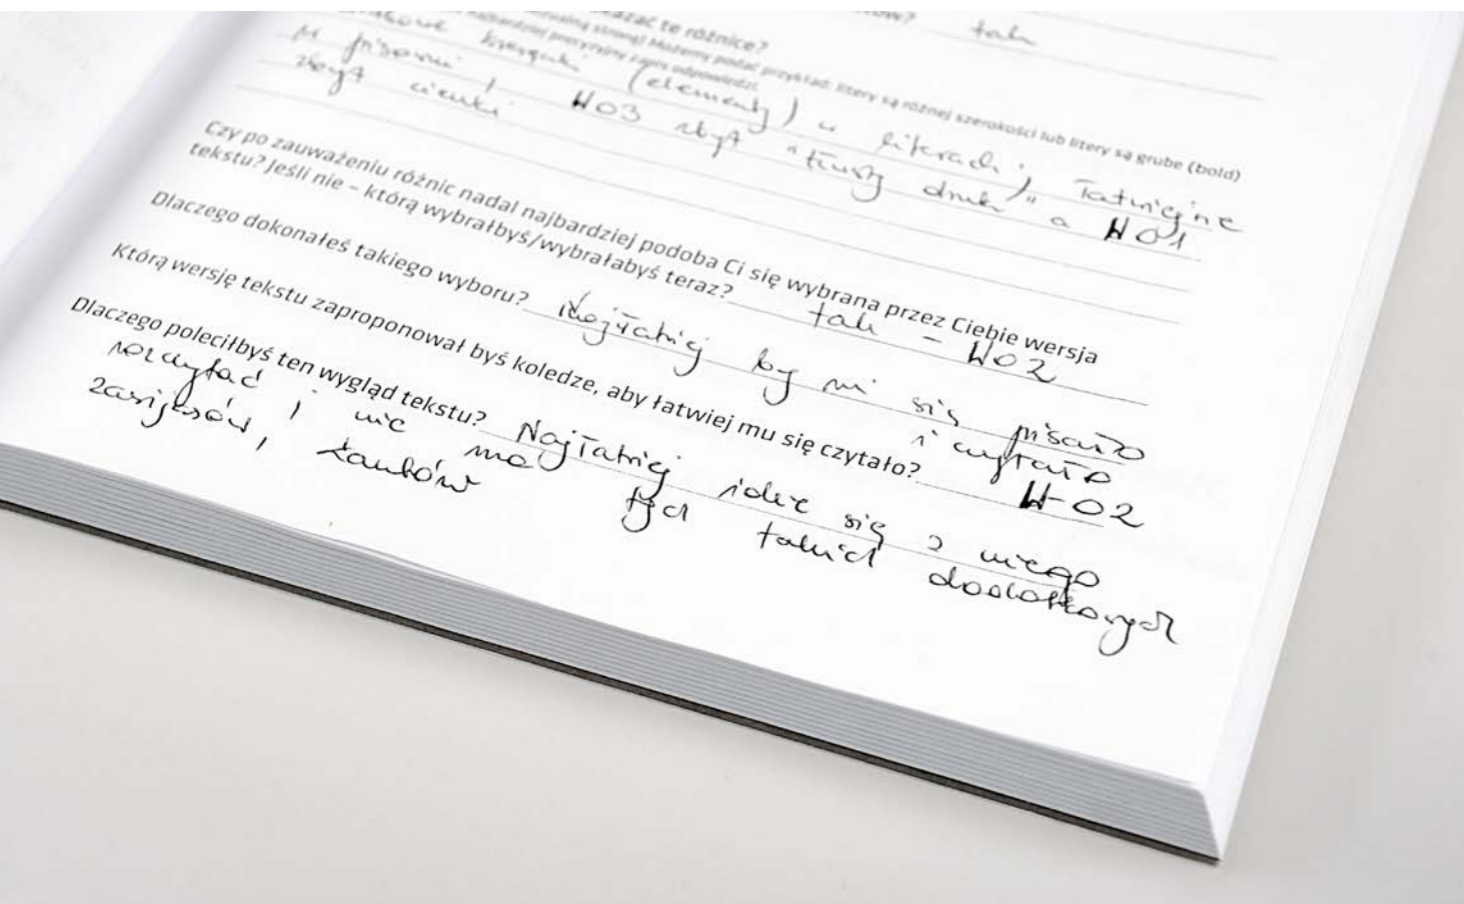 tak
zać te różnice?
Możemy podać przykład: litery są różnej szerokości lub litery są grube (bold)
najbardziej precyzyjny zapis odpowiedzi.
(elementy) w literach; łatwiejsze
w pisowni, W03 zbyt "tłusty druk" a W01
zbyt cienki
Czy po zauważeniu różnic nadal najbardziej podoba Ci się wybrana przez Ciebie wersja
tekstu? Jeśli nie – którą wybrałbyś/wybrałabyś teraz? tak – W02
Dlaczego dokonałeś takiego wyboru? Najłatwiej by mi się pisało
i czytało
Którą wersję tekstu zaproponował byś koledze, aby łatwiej mu się czytało? W02
Dlaczego poleciłbyś ten wygląd tekstu? Najłatwiej idzie się z niego
rozczytać i nie ma tych takich dodatkowych
zawijasów,